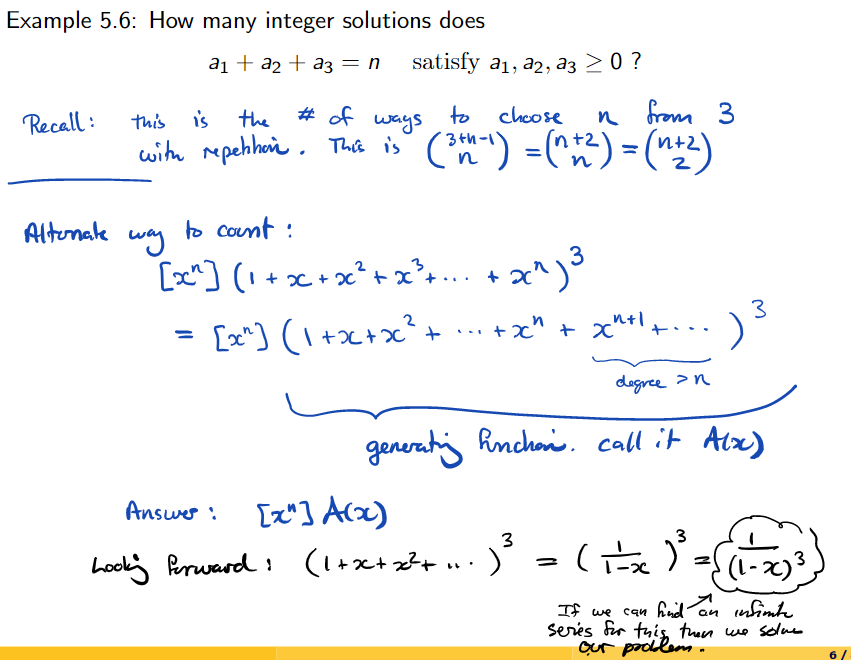 Example 5.6: How many integer solutions does
a₁ + a₂ + a₃ = n satisfy a₁, a₂, a₃ ≥ 0 ?
Recall: this is the # of ways to choose n from 3
with repetition. This is (3+n-1 n) = (n+2 n) = (n+2 2)
Alternate way to count:
[xⁿ] (1 + x + x² + x³ + ... + xⁿ)³
= [xⁿ] (1 + x + x² + ... + xⁿ + xⁿ⁺¹ + ...)³
degree > n
generating function. call it A(x)
Answer: [xⁿ] A(x)
Looking forward: (1 + x + x² + ...)³ = (1/(1-x))³ = 1/(1-x)³
If we can find an infinite
series for this, then we solve
our problem.
6 /